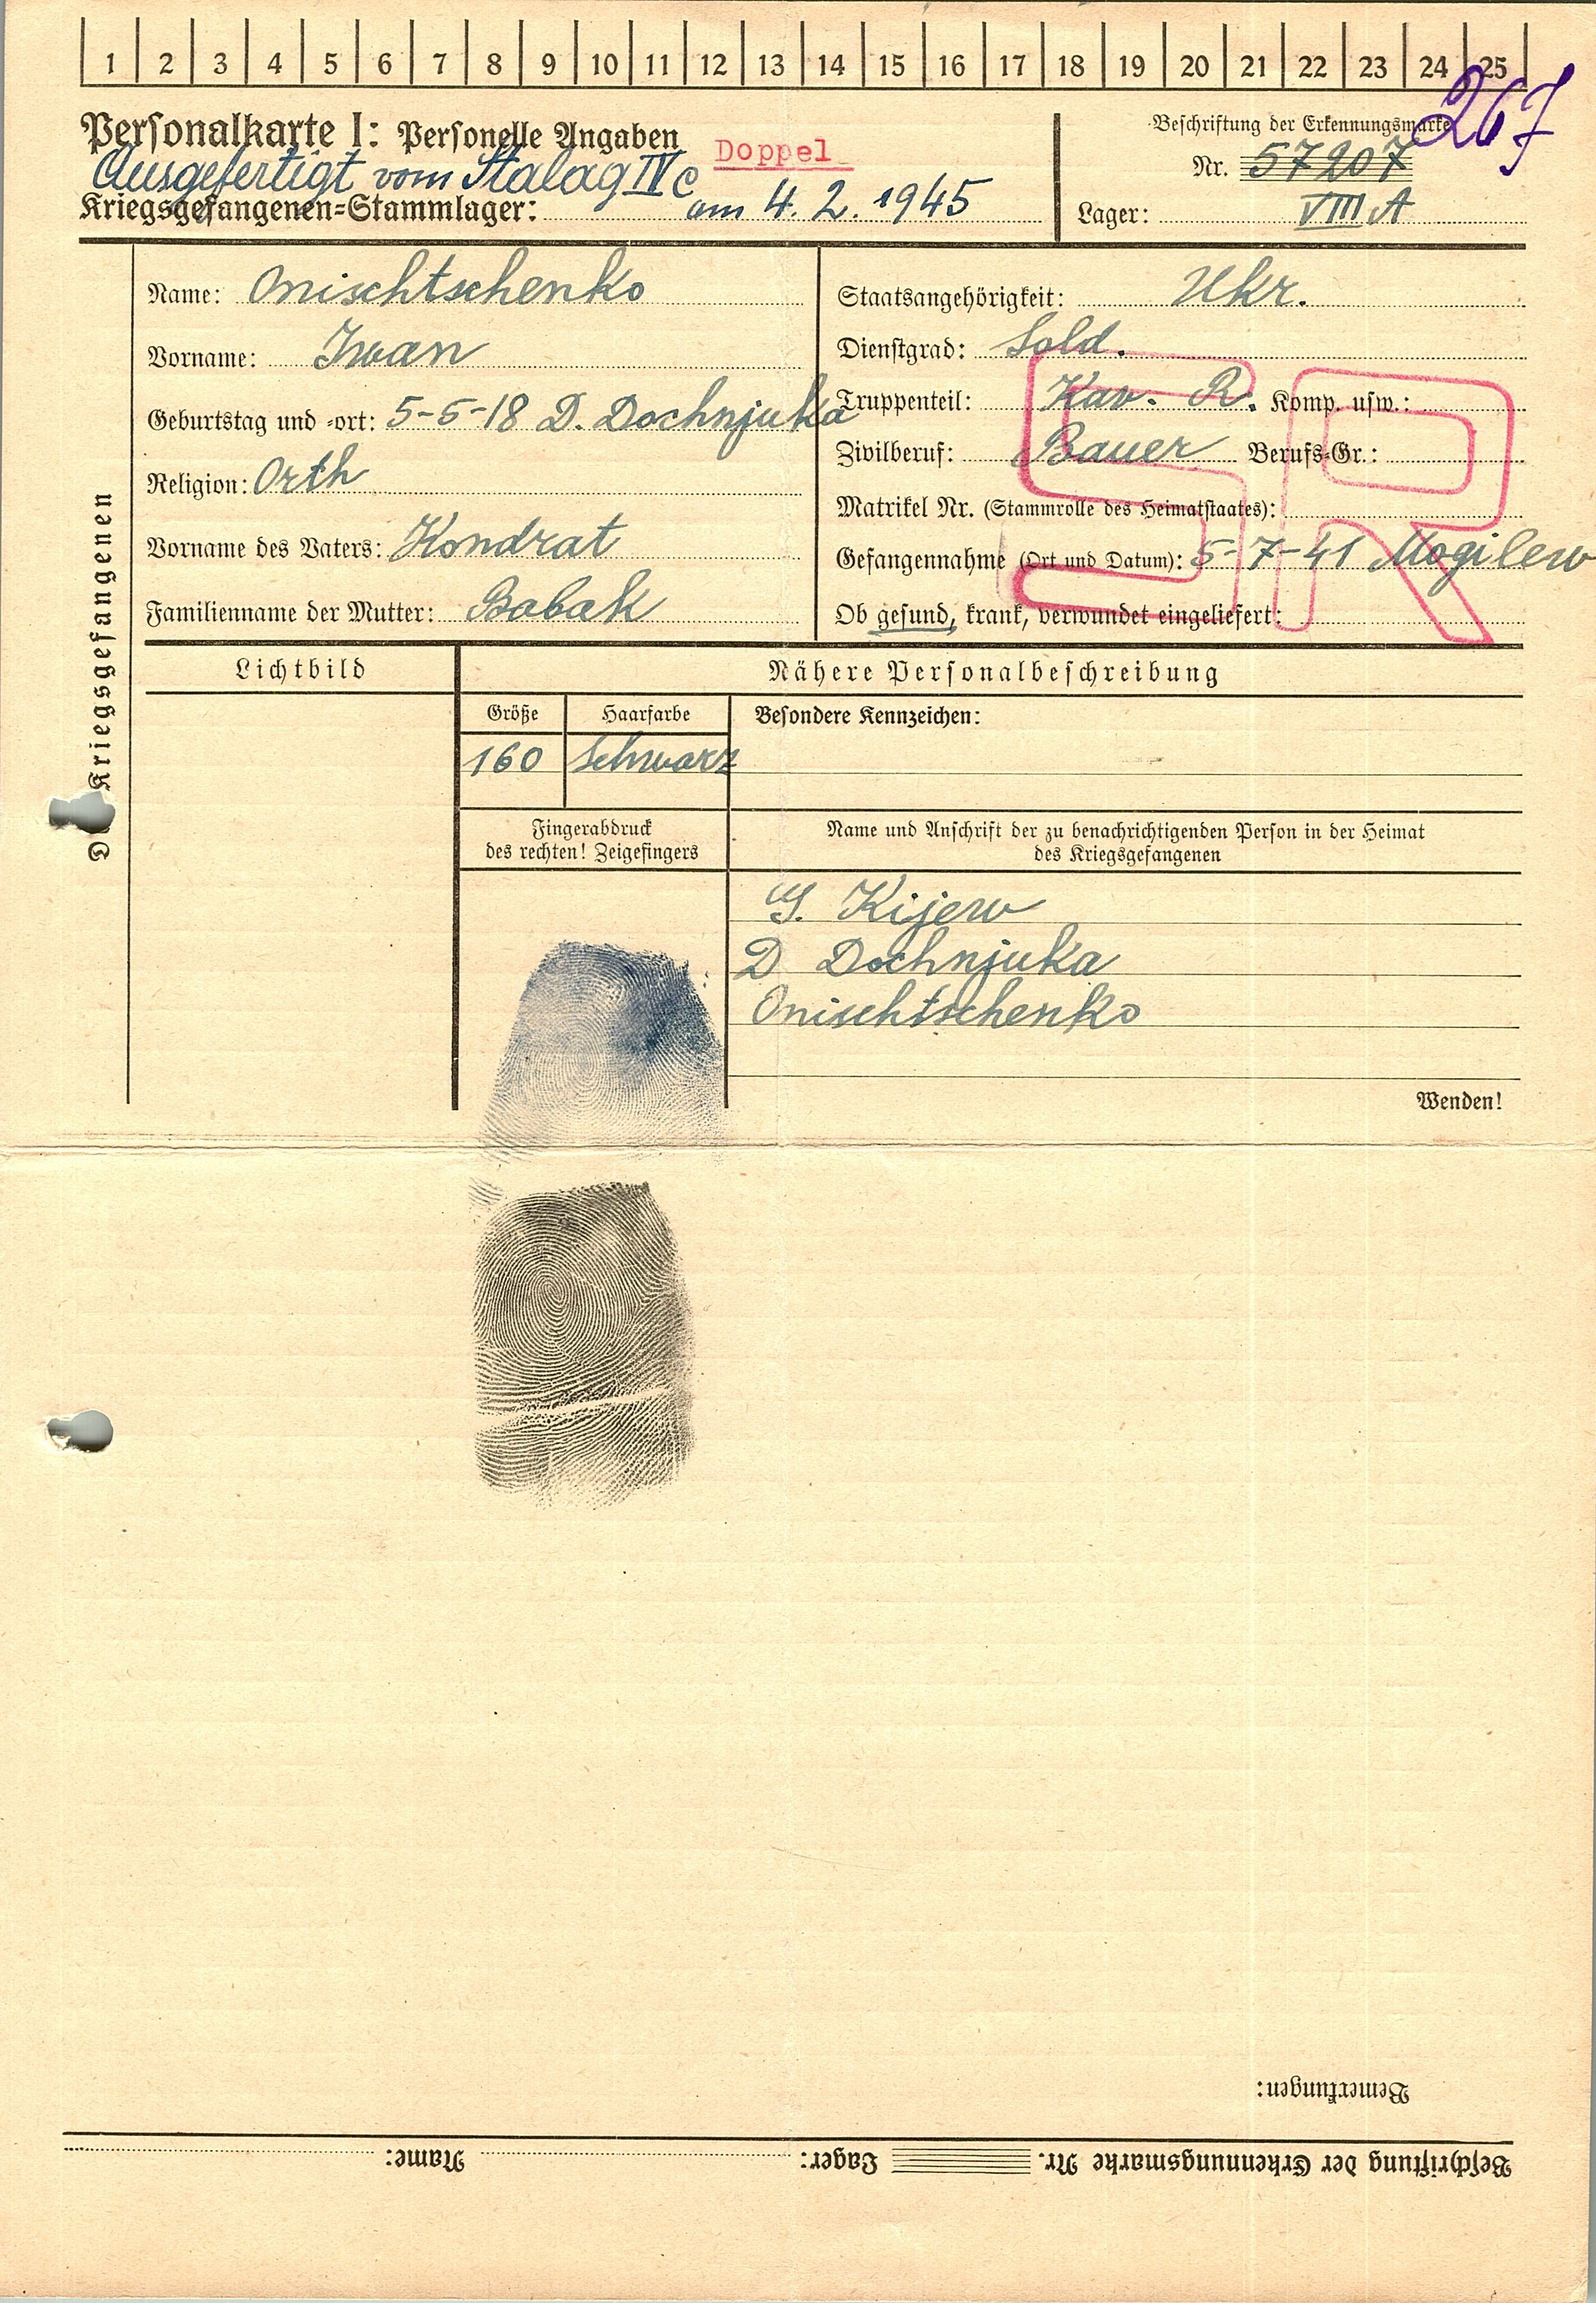 1 2 3 4 5 6 7 8 9 10 11 12 13 14 15 16 17 18 19 20 21 22 23 24 25
267
Personalkarte I: Personelle Angaben
Doppel
Beschriftung der Erkennungsmarke
Nr. 57207
Ausgefertigt vom Stalag IV C
Kriegsgefangenen-Stammlager: am 4. 2. 1945
Lager: VIII A
Kriegsgefangenen
Name: Onischtschenko
Vorname: Iwan
Geburtstag und -ort: 5-5-18 D. Dochnjuka
Religion: Orth
Vorname des Vaters: Kondrat
Familienname der Mutter: Babak
Staatsangehörigkeit: Ukr.
Dienstgrad: Sold.
Truppenteil: Kav. R. Komp. usw.:
Zivilberuf: Bauer Berufs-Gr.:
Matrikel Nr. (Stammrolle des Heimatstaates):
Gefangennahme (Ort und Datum): 5-7-41 Mogilew
Ob gesund, krank, verwundet eingeliefert:
SR
Lichtbild
Nähere Personalbeschreibung
Größe
Haarfarbe
Besondere Kennzeichen:
160
schwarz
Fingerabdruck
des rechten! Zeigefingers
Name und Anschrift der zu benachrichtigenden Person in der Heimat
des Kriegsgefangenen
G. Kijew
D Dochnjuka
Onischtschenko
Wenden!
Bemerkungen:
Beschriftung der Erkennungsmarke Nr. Lager: Name: